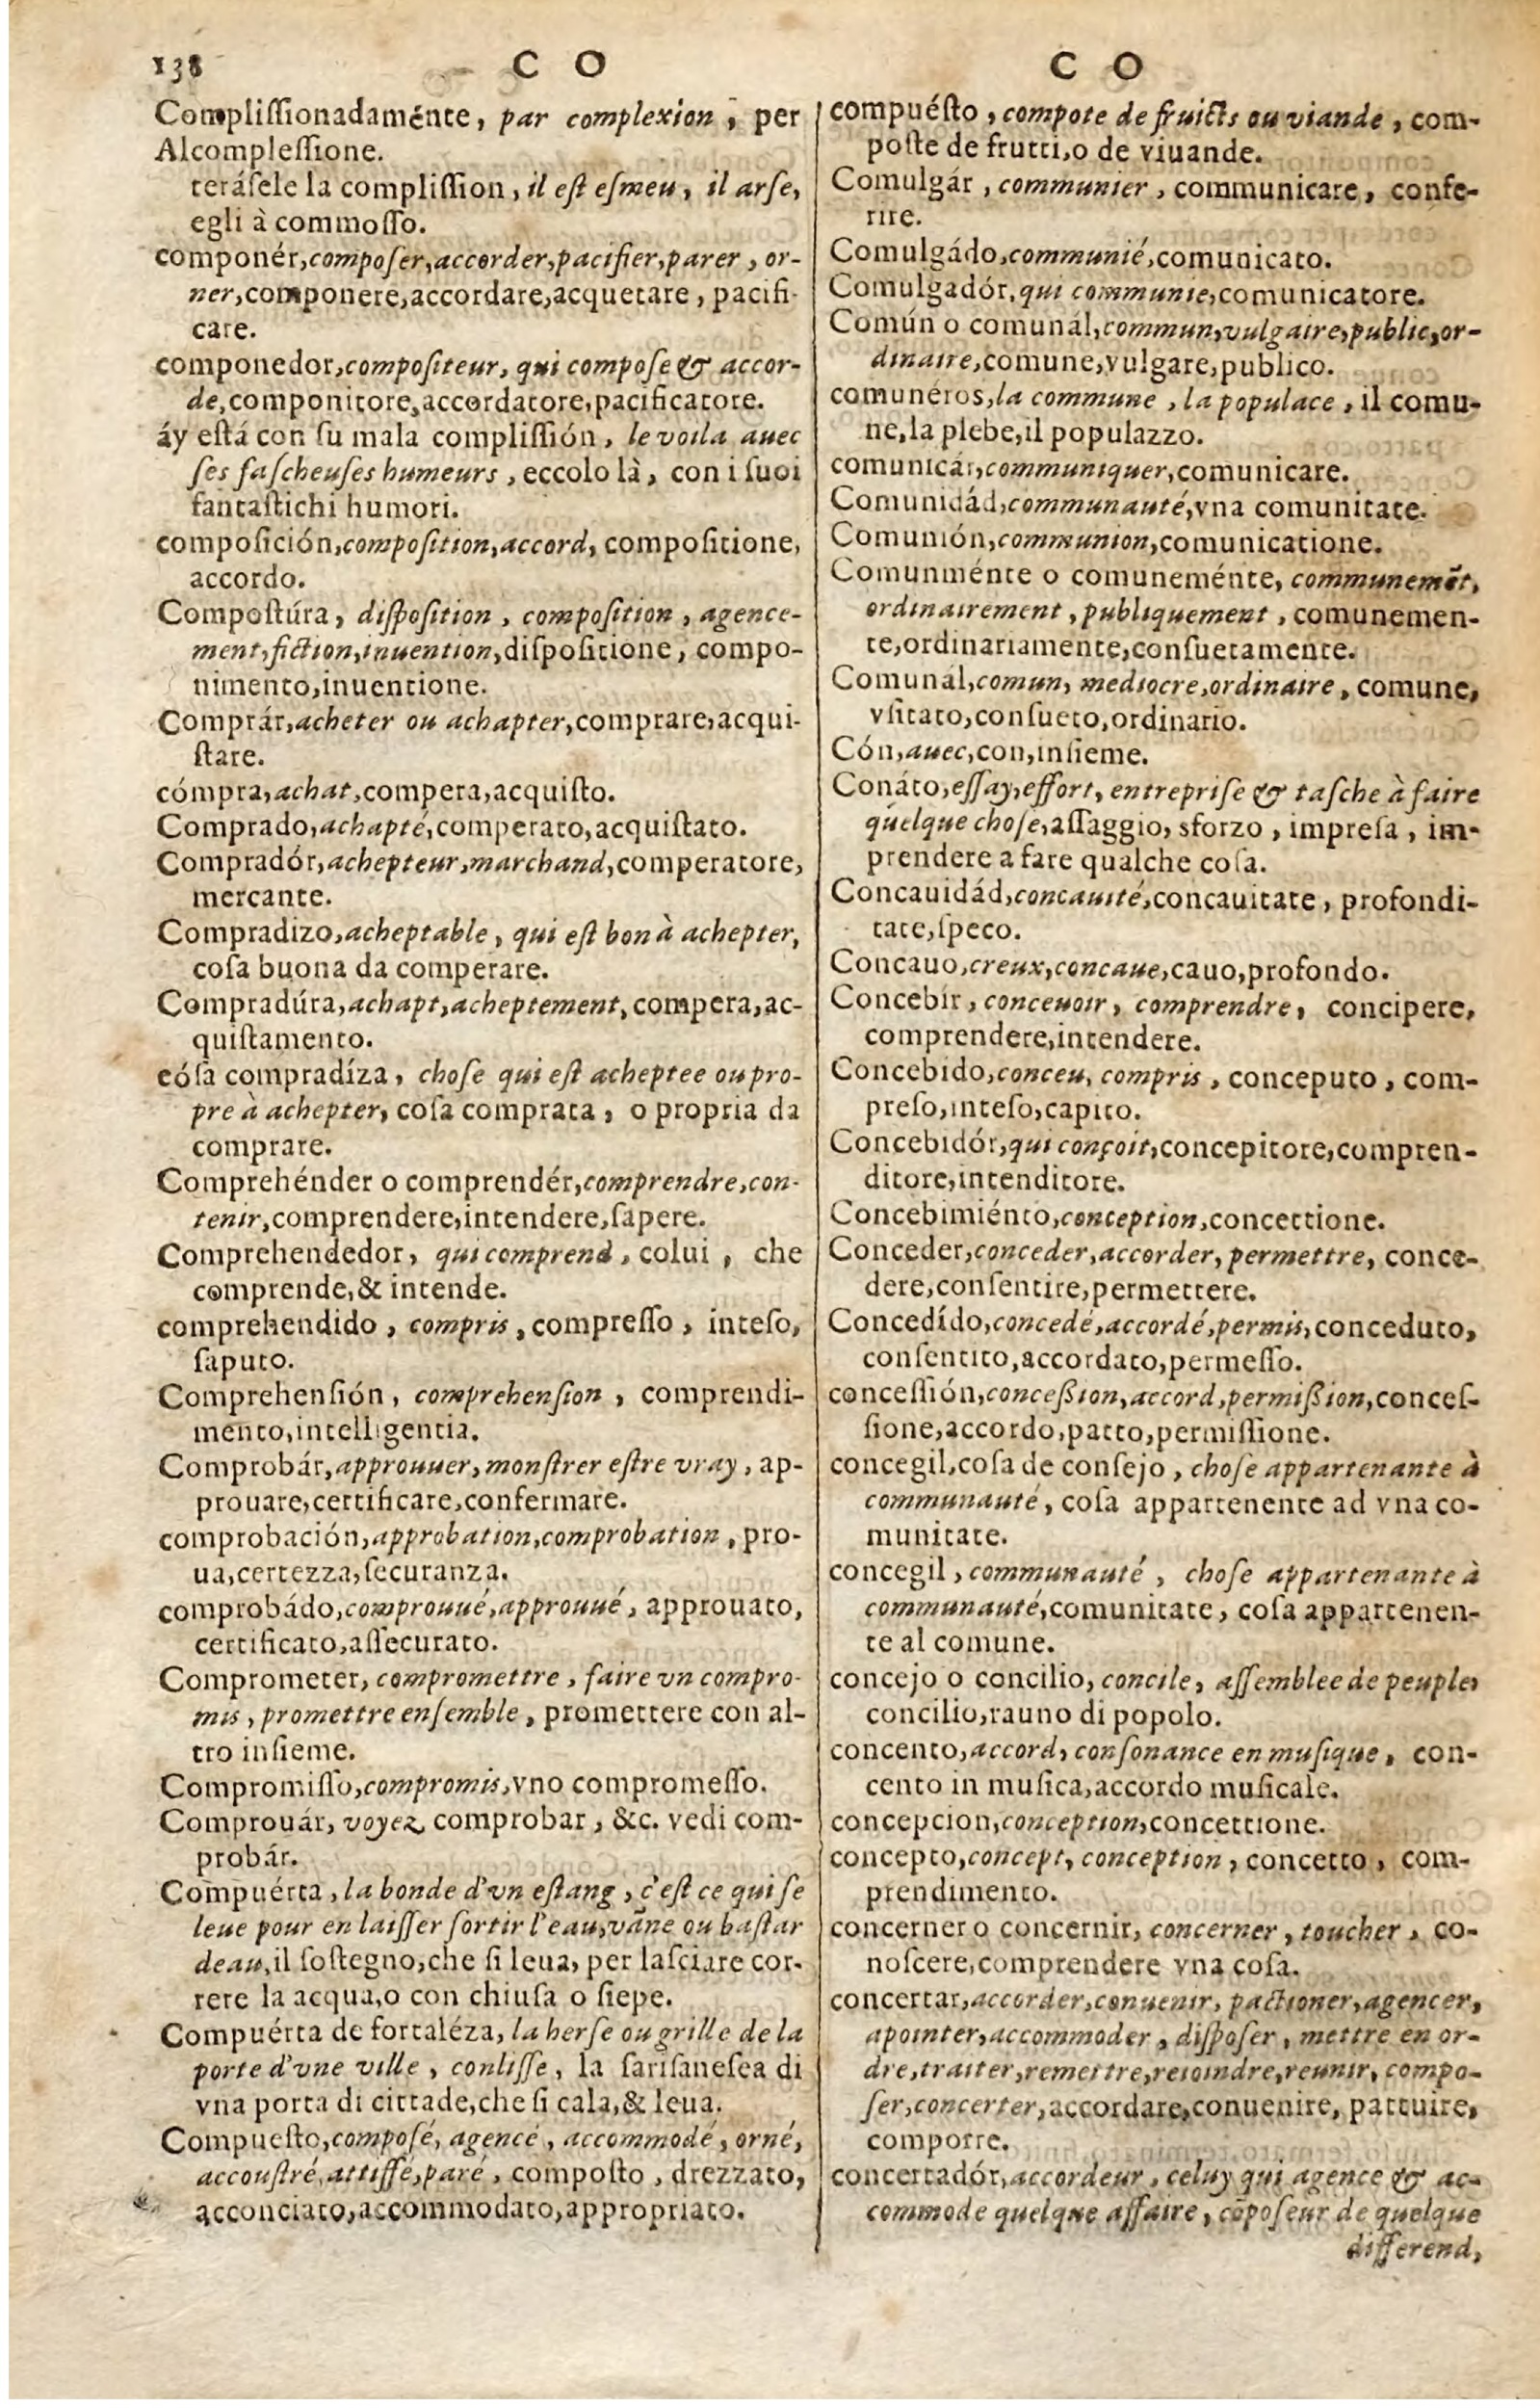 138 C O C O
Compliſſionadaménte, par complexion, per
Alcompleſſione.
teráſele la compliſſion, il eſt eſmeu, il arſe,
egli à commoſſo.
componér,compoſer,accorder,pacifier,parer, or-
ner,componere,accordare,acquetare, pacifi-
care.
componedor,compoſiteur, qui compoſe & accor-
de,componitore,accordatore,pacificatore.
áy eſtá con ſu mala compliſſión, le voila auec
ſes faſcheuſes humeurs, eccolo là, con i ſuoi
fantaſtichi humori.
compoſición,compoſition,accord, compoſitione,
accordo.
Compoſtúra, diſpoſition, compoſition, agence-
ment,fiction,inuention,diſpoſitione, compo-
nimento,inuentione.
Comprár,acheter ou achapter,comprare,acqui-
ſtare.
cómpra,achat,compera,acquiſto.
Comprado,achapté,comperato,acquiſtato.
Compradór,achepteur,marchand,comperatore,
mercante.
Compradizo,acheptable, qui eſt bon à achepter,
coſa buona da comperare.
Compradúra,achapt,acheptement, compera,ac-
quiſtamento.
cóſa compradíza, choſe qui eſt acheptee ou pro-
pre à achepter, coſa comprata, o propria da
comprare.
Comprehénder o comprendér,comprendre,con-
tenir,comprendere,intendere,ſapere.
Comprehendedor, qui comprend, colui, che
comprende,& intende.
comprehendido, compris, compreſſo, inteſo,
ſaputo.
Comprehenſión, comprehenſion, comprendi-
mento,intelligentia.
Comprobár,approuuer,monſtrer eſtre vray, ap-
prouare,certificare,confermare.
comprobación,approbation,comprobation, pro-
ua,certezza,ſecuranza.
comprobádo,comprouué,approuué, approuato,
certificato,aſſecurato.
Comprometer, compromettre, faire vn compro-
mis, promettre enſemble, promettere con al-
tro inſieme.
Compromiſſo,compromis,vno compromeſſo.
Comprouár, voyez comprobar, &c. vedi com-
probár.
Compuérta, la bonde d'vn eſtang, c'eſt ce qui ſe
leue pour en laiſſer ſortir l'eau,vāne ou baſtar
deau,il ſoſtegno,che ſi leua, per laſciare cor-
rere la acqua,o con chiuſa o ſiepe.
Compuérta de fortaléza, la herſe ou grille de la
porte d'vne ville, conliſſe, la ſariſaneſea di
vna porta di cittade,che ſi cala,& leua.
Compueſto,compoſé, agencé, accommodé, orné,
accouſtré,attiffé,paré, compoſto, drezzato,
acconciato,accommodato,appropriato.
compuéſto, compote de fruicts ou viande, com-
poſte de frutti,o de viuande.
Comulgár, communier, communicare, confe-
rire.
Comulgádo,communié,comunicato.
Comulgadór,qui communie,comunicatore.
Común o comunál,commun,vulgaire,public,or-
dinaire,comune,vulgare,publico.
comunéros,la commune, la populace, il comu-
ne,la plebe,il populazzo.
comunicár,communiquer,comunicare.
Comunidád,communauté,vna comunitate.
Comunión,communion,comunicatione.
Comunménte o comuneménte, communemēt,
ordinairement, publiquement, comunemen-
te,ordinariamente,conſuetamente.
Comunál,comun, mediocre,ordinaire, comune,
vſitato,conſueto,ordinario.
Cón,auec,con,inſieme.
Conáto,eſſay,effort, entrepriſe & taſche à faire
quelque choſe,aſſaggio, sforzo, impreſa, im-
prendere a fare qualche coſa.
Concauidád,concauité,concauitate, profondi-
tate,ſpeco.
Concauo,creux,concaue,cauo,profondo.
Concebír, conceuoir, comprendre, concipere,
comprendere,intendere.
Concebido,conceu, compris, conceputo, com-
preſo,inteſo,capito.
Concebidór,qui conçoit,concepitore,compren-
ditore,intenditore.
Concebimiénto,conception,concettione.
Conceder,conceder,accorder, permettre, conce-
dere,conſentire,permettere.
Concedído,concedé,accordé,permis,conceduto,
conſentito,accordato,permeſſo.
conceſſión,conceßion,accord,permißion,conceſ-
ſione,accordo,patto,permiſſione.
concegil,coſa de conſejo, choſe appartenante à
communauté, coſa appartenente ad vna co-
munitate.
concegil, communauté, choſe appartenante à
communauté,comunitate, coſa appartenen-
te al comune.
concejo o concilio, concile, aſſemblee de peuple,
concilio,rauno di popolo.
concento,accord, conſonance en muſique, con-
cento in muſica,accordo muſicale.
concepcion,conception,concettione.
concepto,concept, conception, concetto, com-
prendimento.
concerner o concernir, concerner, toucher, co-
noſcere,comprendere vna coſa.
concertar,accorder,conuenir, pactioner,agencer,
apointer,accommoder, diſpoſer, mettre en or-
dre,traiter,remettre,reioindre,reunir, compo-
ſer,concerter,accordare,conuenire, pattuire,
comporre.
concertadór,accordeur, celuy qui agence & ac-
commode quelque affaire, cōpoſeur de quelque
differend,